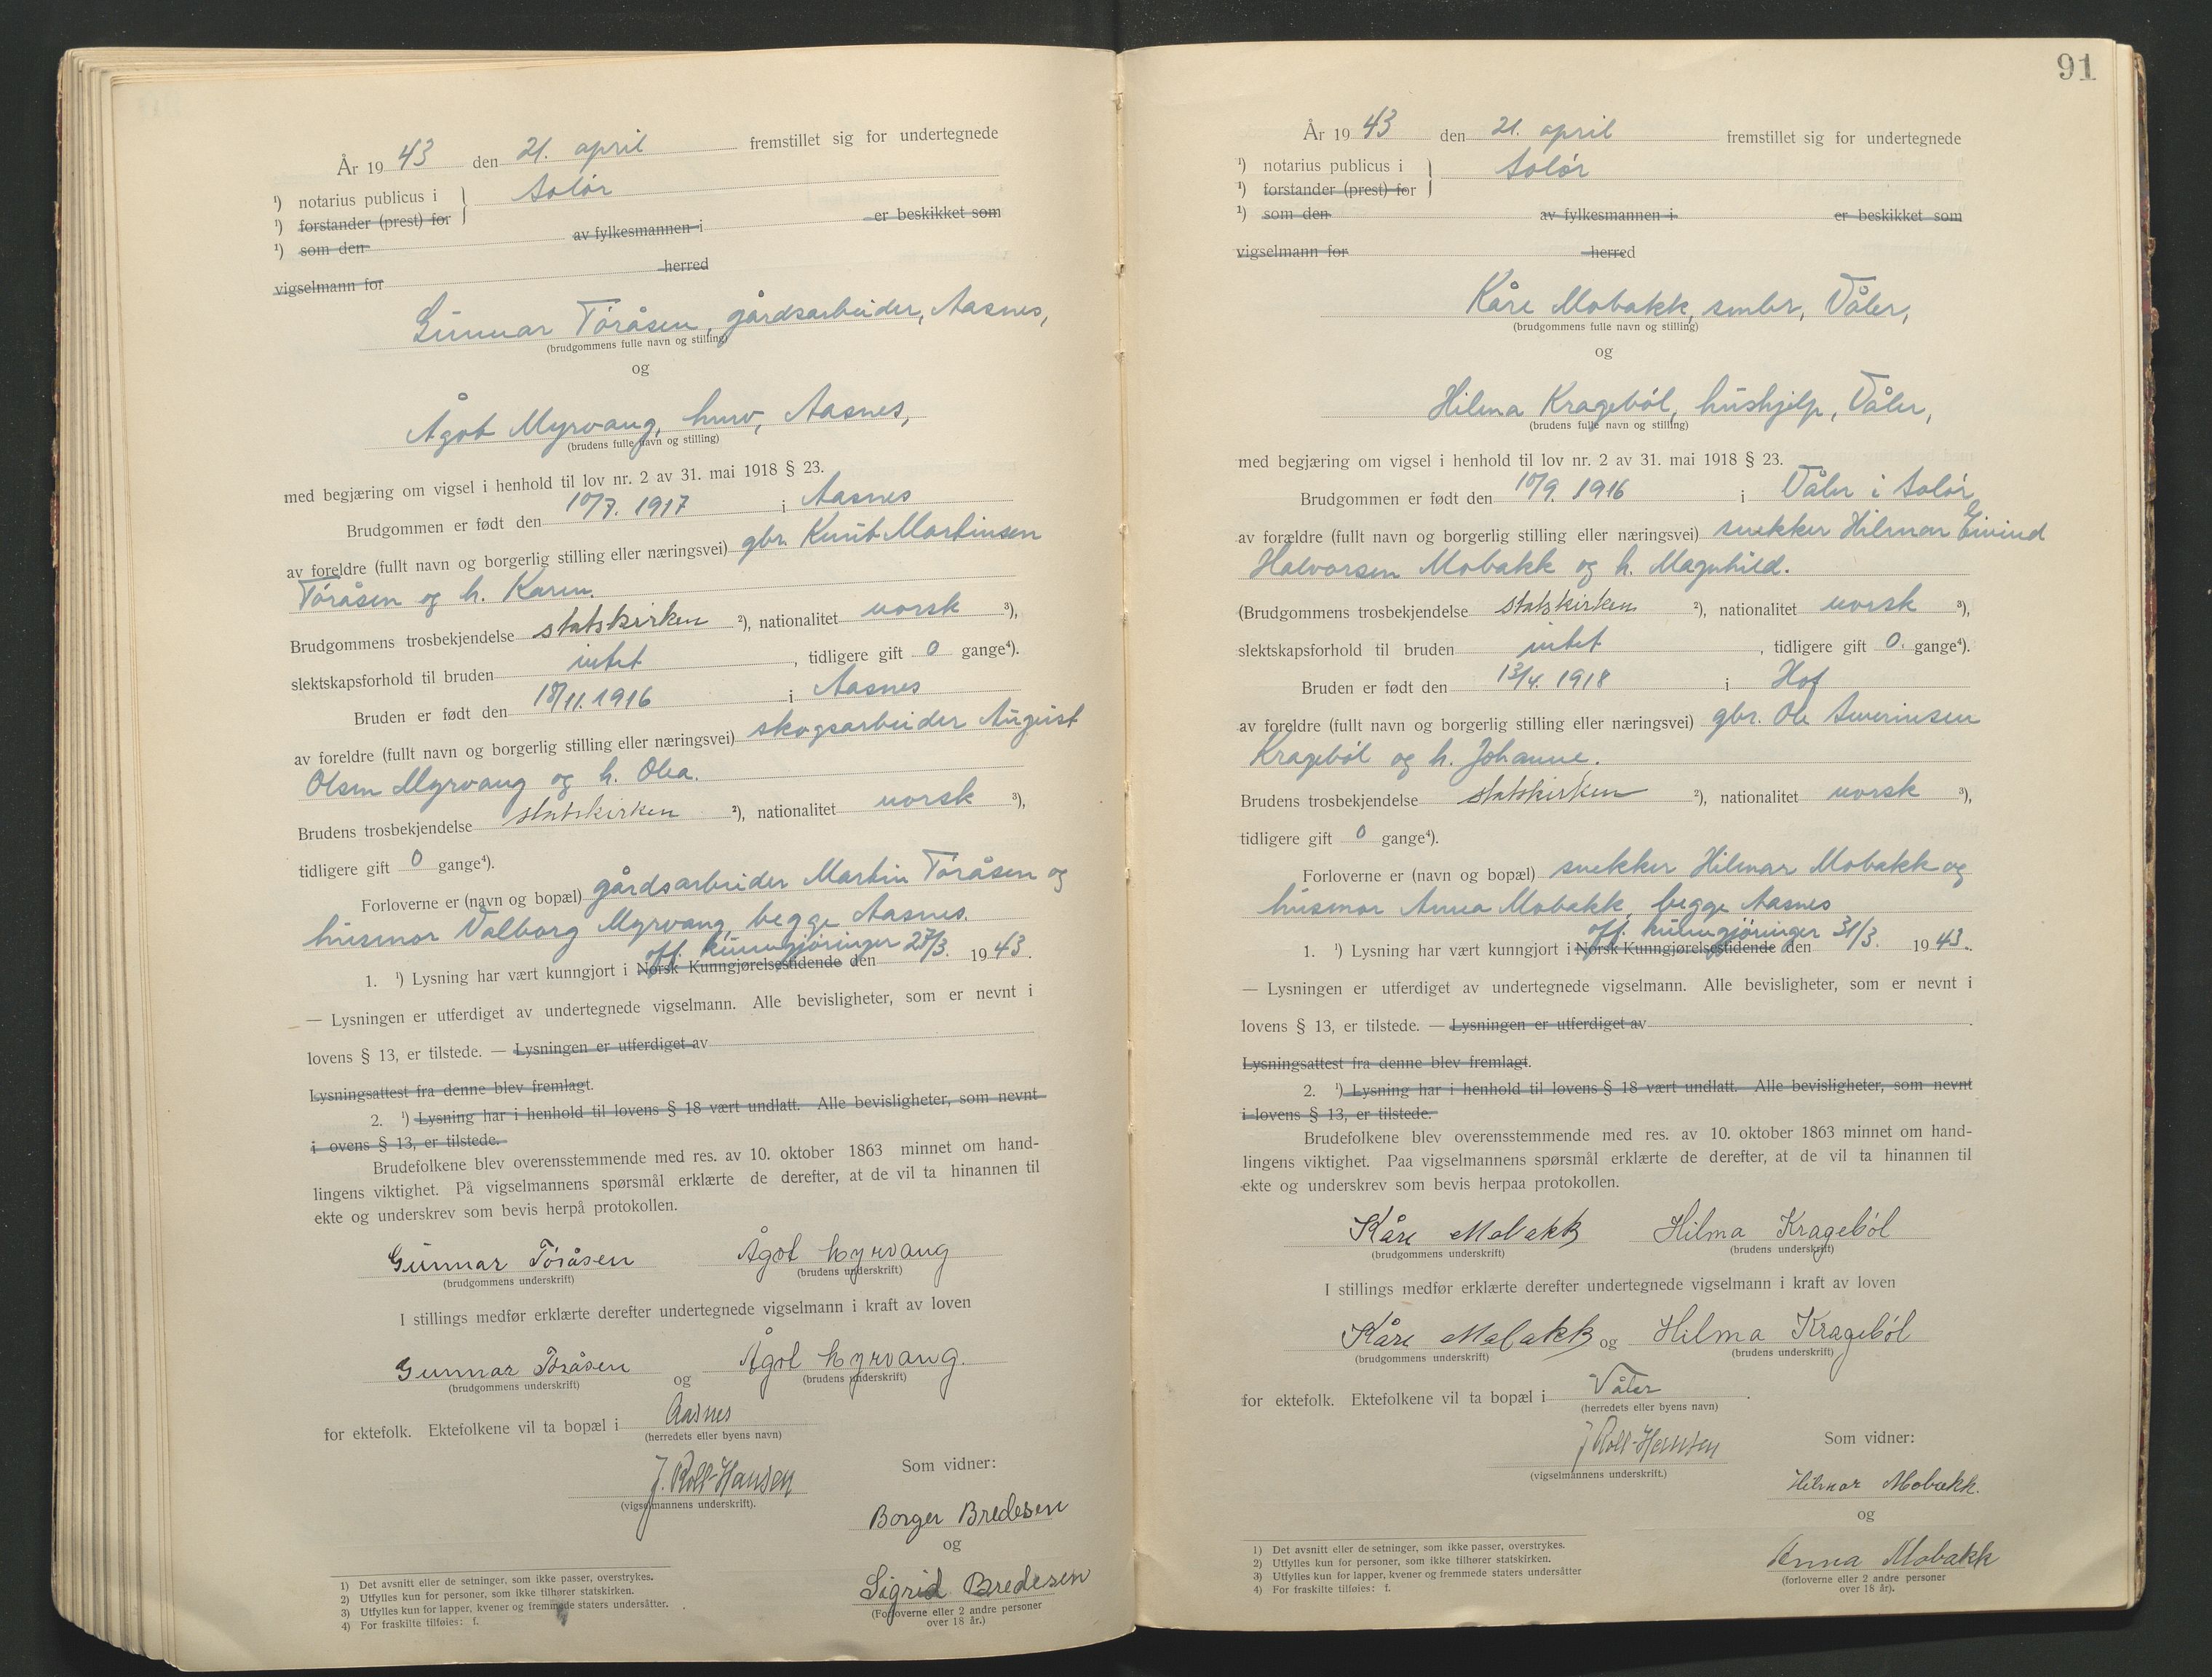 År 19 43 den 21. april fremstillet sig for undertegnede
¹) notarius publicus i } Solør
¹) forstander (prest) for
¹) som den av fylkesmannen i er beskikket som
vigselmann for herred
Gunnar Toråsen, gårdsarbeider, Aasnes,
(brudgommens fulle navn og stilling)
og
Ågot Myrvang, husv, Aasnes,
(brudens fulle navn og stilling)
med begjæring om vigsel i henhold til lov nr. 2 av 31. mai 1918 § 23.
Brudgommen er født den 10/7. 1917 i Aasnes
av foreldre (fullt navn og borgerlig stilling eller næringsvei) gbr. Knut Martinsen
Toråsen og h. Karen.
Brudgommens trosbekjendelse statskirken ²), nationalitet norsk ³),
slektskapsforhold til bruden intet , tidligere gift 0 gange⁴).
Bruden er født den 18/11. 1916 i Aasnes
av foreldre (fullt navn og borgerlig stilling eller næringsvei) skogsarbeider August
Olsen Myrvang og h. Olea.
Brudens trosbekjendelse statskirken ²), nationalitet norsk ³),
tidligere gift 0 gange⁴).
Forloverne er (navn og bopæl) gårdsarbeider Martin Toråsen og
husmor Valborg Myrvang, begge Aasnes.
off. kunngjøringer
1. ¹) Lysning har vært kunngjort i Norsk Kunngjørelsestidende den 27/3. 19 43.
— Lysningen er utferdiget av undertegnede vigselmann. Alle bevisligheter, som er nevnt i
lovens § 13, er tilstede. — Lysningen er utferdiget av
Lysningsattest fra denne blev fremlagt.
2. ¹) Lysning har i henhold til lovens § 18 vært undlatt. Alle bevisligheter, som nevnt
i ovens § 13, er tilstede.
Brudefolkene blev overensstemmende med res. av 10. oktober 1863 minnet om hand-
lingens viktighet. På vigselmannens spørsmål erklærte de derefter, at de vil ta hinannen til
ekte og underskrev som bevis herpå protokollen.
Gunnar Toråsen Ågot Myrvang
(brudgommens underskrift) (brudens underskrift)
I stillings medfør erklærte derefter undertegnede vigselmann i kraft av loven
Gunnar Toråsen og Ågot Myrvang.
(brudgommens underskrift) (brudens underskrift)
for ektefolk. Ektefolkene vil ta bopæl i Aasnes
(herredets eller byens navn)
Som vidner:
J. Roll-Hansen
(vigselmannens underskrift).
Borger Bredesen
og
Sigrid Bredesen
(Forloverne eller 2 andre personer
over 18 år.)
1) Det avsnitt eller de setninger, som ikke passer, overstrykes.
2) Utfylles kun for personer, som ikke tilhører statskirken.
3) Utfylles kun for lapper, kvener og fremmede staters undersåtter.
4) For fraskilte tilføies: f.
91
År 19 43 den 21. april fremstillet sig for undertegnede
¹) notarius publicus i } Solør
¹) forstander (prest) for
¹) som den av fylkesmannen i er beskikket som
vigselmann for herred
Kåre Mobakk, smbr, Våler,
(brudgommens fulle navn og stilling)
og
Hilma Kragebøl, hushjelp, Våler,
(brudens fulle navn og stilling)
med begjæring om vigsel i henhold til lov nr. 2 av 31. mai 1918 § 23.
Brudgommen er født den 10/9. 1916 i Våler i Solør
av forældre (fullt navn og borgerlig stilling eller næringsvei) snekker Hilmar Eivind
Halvorsen Mobakk og h. Magnhild.
(Brudgommens trosbekjendelse statskirken ²), nationalitet norsk ³),
slektskapsforhold til bruden intet , tidligere gift 0. gange⁴).
Bruden er født den 13/4. 1918 i Hof
av foreldre (fullt navn og borgerlig stilling eller næringsvei) gbr. Ole Severinsen
Kragebøl og h. Johanne.
Brudens trosbekjendelse statskirken ²), nationalitet norsk ³),
tidligere gift 0 gange⁴).
Forloverne er (navn og bopæl) snekker Hilmar Mobakk og
husmor Anna Mobakk, begge Aasnes
off. kunngjøringer
1. ¹) Lysning har vært kunngjort i Norsk Kunngjørelsestidende den 31/3. 19 43.
— Lysningen er utferdiget av undertegnede vigselmann. Alle bevisligheter, som er nevnt i
lovens § 13, er tilstede. — Lysningen er utferdiget av
Lysningsattest fra denne blev fremlagt.
2. ¹) Lysning har i henhold til lovens § 18 vært undlatt. Alle bevisligheter, som nevnt
i lovens § 13, er tilstede.
Brudefolkene blev overensstemmende med res. av 10. oktober 1863 minnet om hand-
lingens viktighet. Paa vigselmannens spørsmål erklærte de derefter, at de vil ta hinannen til
ekte og underskrev som bevis herpaa protokollen.
Kåre Mobakk Hilma Kragebøl
(brudgommens underskrift) (brudens underskrift)
I stillings medfør erklærte derefter undertegnede vigselmann i kraft av loven
Kåre Mobakk og Hilma Kragebøl
(brudgommens underskrift) (brudens underskrift)
for ektefolk. Ektefolkene vil ta bopæl i Våler
(herredets eller byens navn)
J Roll-Hansen
(vigselmannens underskrift.)
Som vidner:
Hilmar Mobakk.
og
Anna Mobakk
(forloverne eller 2 andre personer
over 18 år).
1) Det avsnitt eller de setninger, som ikke passer, overstrykes.
2) Utfylles kun for personer, som ikke tilhører statskirken.
3) Utfylles kun for lapper, kvener og fremmede staters undersåtter
4) For fraskilte tilføies: f.